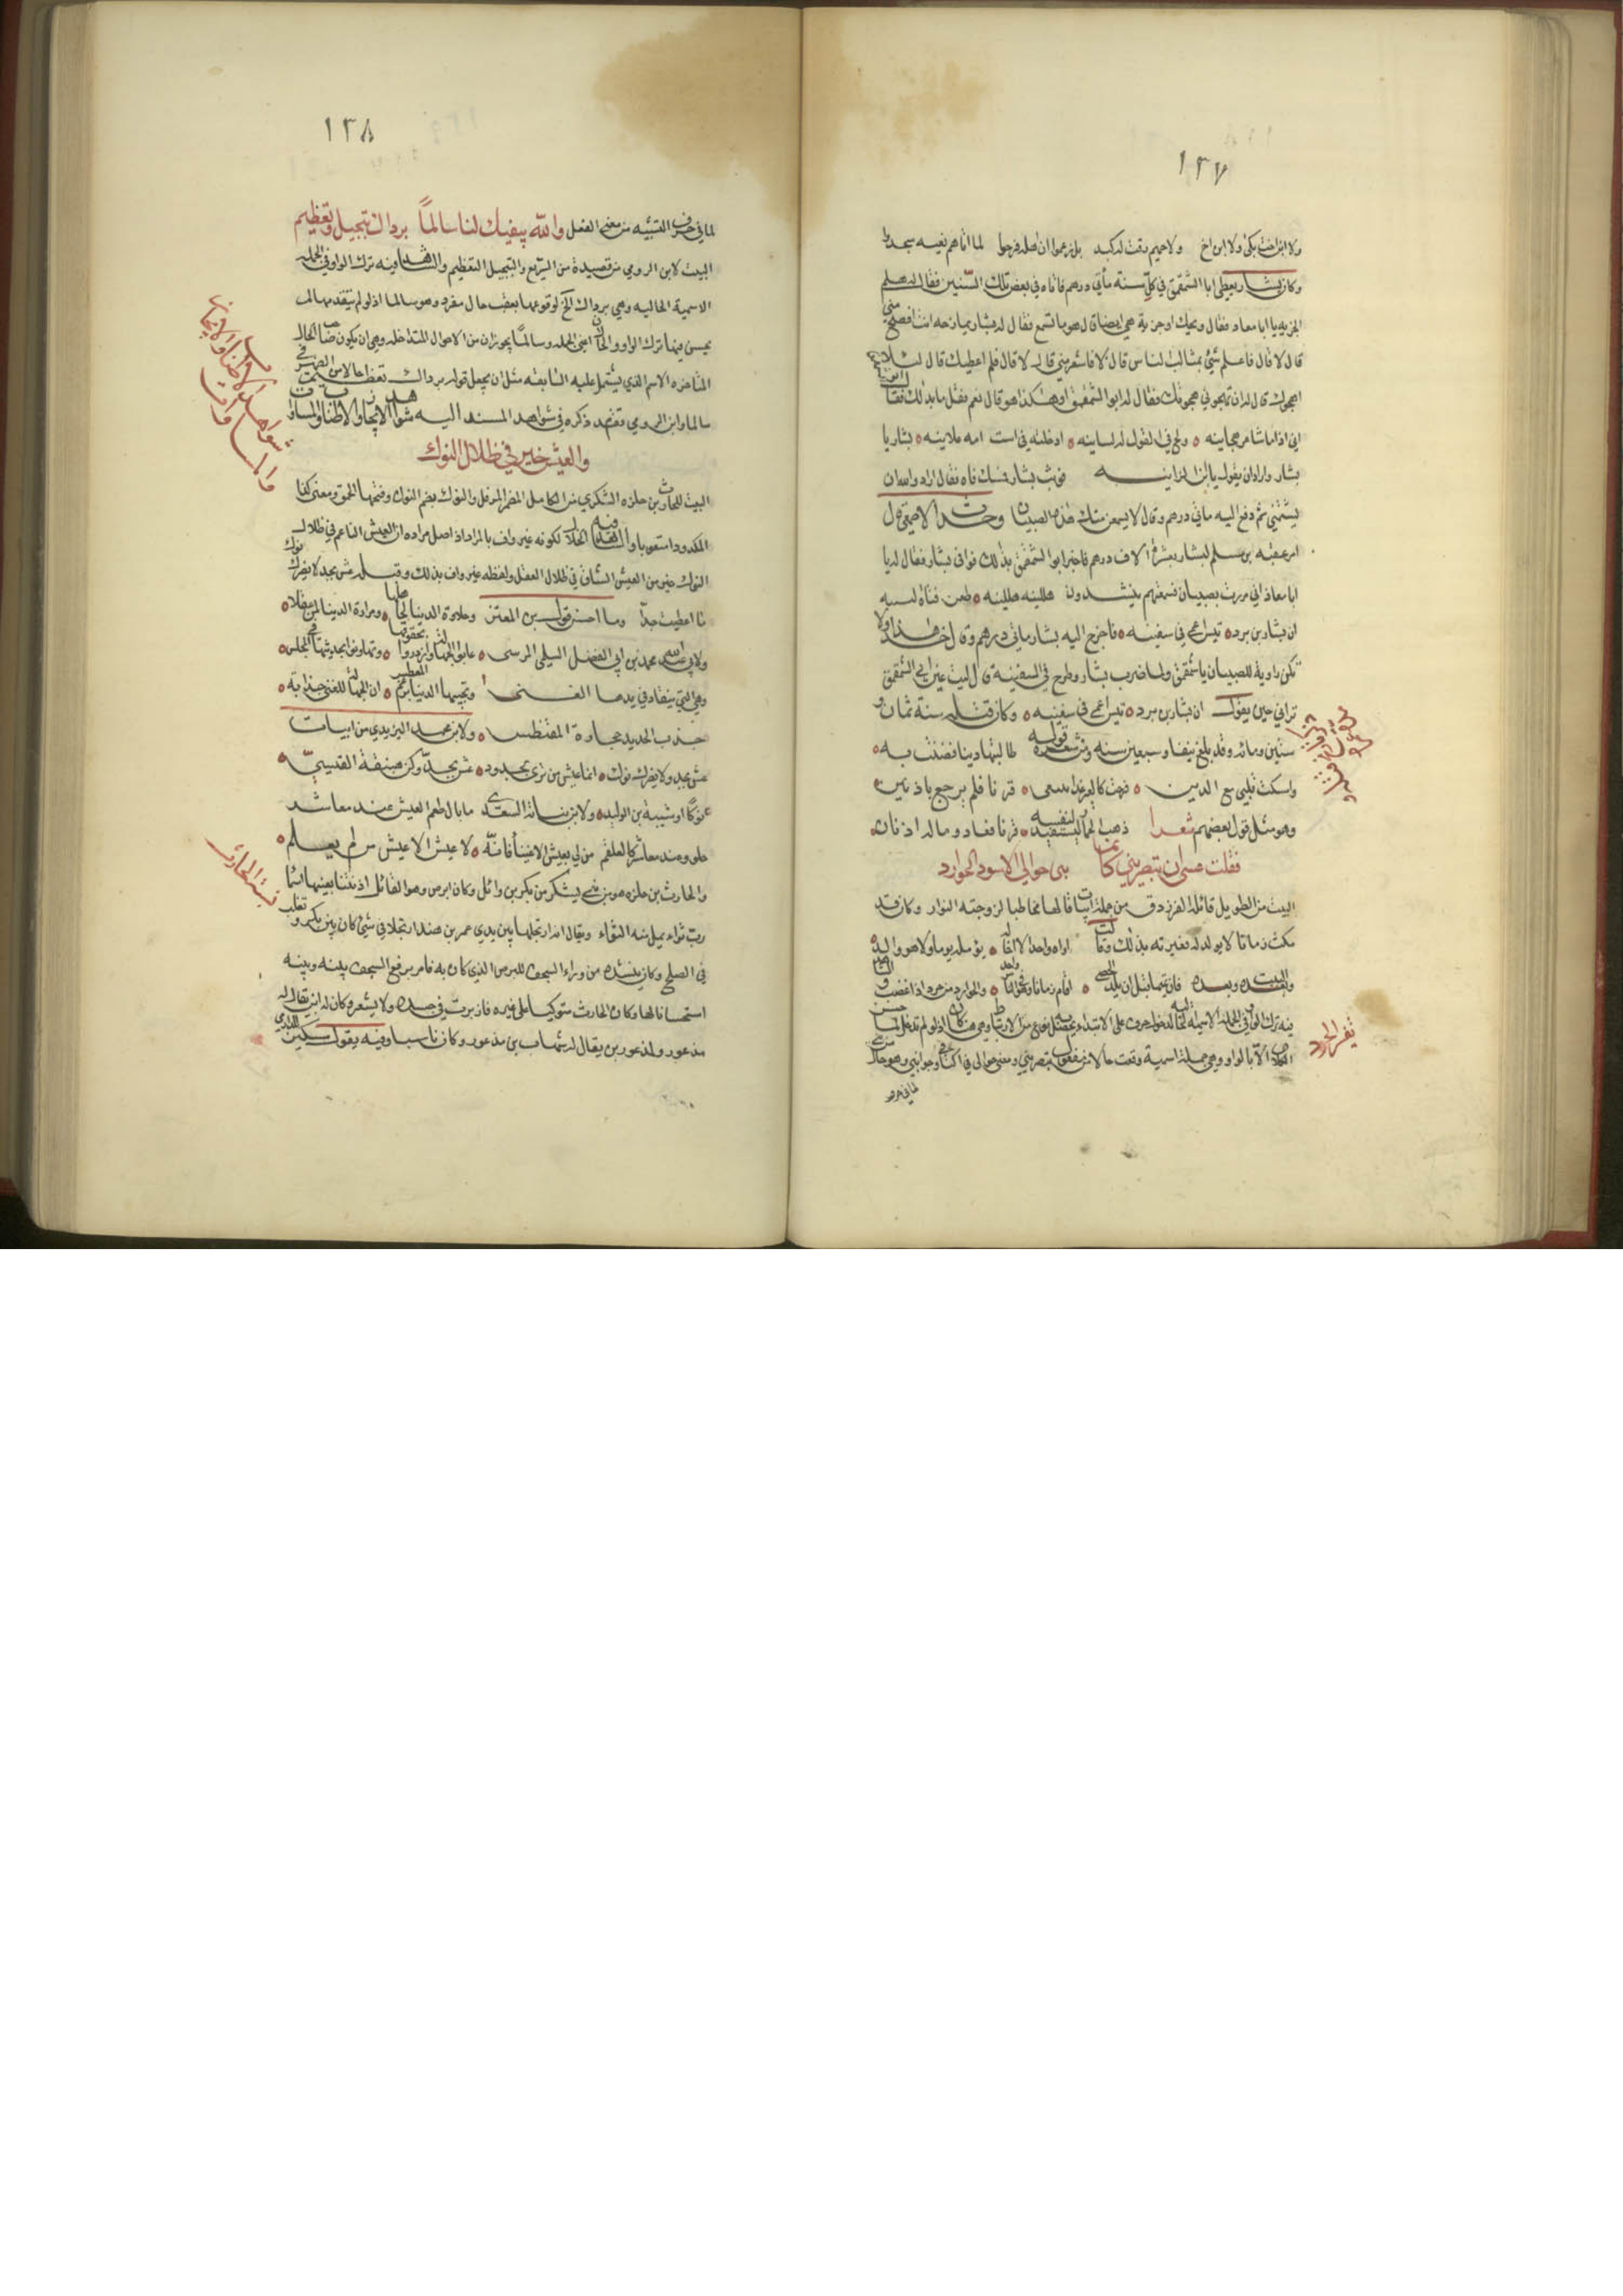 ١٢٧
ولا ابن اخت بكى ولا ابن اخ ولا حميم رقت له كبد بل زعموا ان اهله فرحا لما اتاهم نعيه سجدوا
وكان بشار يعطي ابا الشمقمق في كل سنة مأتي درهم فاتاه في بعض تلك السنين فقال له هلم
الجزية يا ابا معاد فقال ويحك اوجزية هي ايضا قال هو ما تسمع فقال له بشار يمازحه انت افصح مني
قال لا قال فاعلم مني بمثالب الناس قال لا قال فاشعر مني قال لا قال فلم اعطيك قال لئلا
اهجوك قال له ان تهجوني هجوتك فقال له ابو الشمقمق او هكذا هو قال نعم فقل ما بدا لك فقال
اني اذا ما شاعر هجانيه ولج في القول له لسانيه ادخلته في است امه علانيه بشار يا
بشار واراد ان يقول يا ابن الزانيه فوثب بشار فامسك فاه فقال اراد والله ان
يشتمني ثم دفع اليه مأتي درهم وقال لا يسمعن منك هذا الصبيان وحدث الاصمعي قال
امر عقبه بن سلم لبشار بعشرة الاف درهم فاخبر ابو الشمقمق بذلك فوافى بشار فقال له يا
ابا معاذ اني مررت بصبيان فسمعتهم ينشدون هللينه هللينه طعن قثاة لتينه
ان بشار بن برد تيس اعمى في سفينه فاخرج اليه بشار مأتي درهم وقال خذ هذا ولا
تكن راوية للصبيان يا شمقمق ولما ضرب بشار وطرح في السفينة قال ليت عين ابي الشمقمق
تراني حين يقول ان بشار بن برد تيس اعمى في سفينه وكان قتله سنة ثمان و
ستين ومائه وقد بلغ نيفا وسبعين سنه ومن شعره قوله طالبتها دينا فضنت به
وامسكت قلبي مع الدين فرحت كالعير غدا يبتغي قرنا فلم يرجع باذنين
وهو مثل قول بعضهم شعرا ذهب الحمار ليستفيد لنفسه قرنا فعاد وما له اذنان
فقلت عسى ان تبصريني كانما بني حوالي الاسود الحوارد
البيت من الطويل قائله الفرزدق من جملة ابيات قالها مخاطبا لزوجته النوار وكان قد
مكث زمانا لا يولد له فعيرته بذلك وقالت اراه واحدا لا اخا له يؤمله يوما ولا هو والد
وبعده فان تميما قبل ان يلد الحصى اقام زمانا وهو في الناس واحد والحوارد من حرد اذا غضب
فيه ترك الواو في الجملة الاسمية الحالية لدخول حرف على الابتداء
الا بالواو وهي جملة اسمية وقعت حالا من مفعول تبصريني ومعنى حوالي في اكنافي وجوانبي وهو حال
لما في حرف
نفي الحرد
١٢٨
لما في حرف التشبيه من معنى الفعل والله يبقيك لنا سالما برداك تبجيل وتعظيم
البيت لابن الرومي من قصيدة من السريع والتبجيل التعظيم والشاهد فيه ترك الواو في الجملة
الاسمية الحالية وهي برداك الخ لوقوعها بعقب حال مفرد وهو سالما اذ لو لم يتقدمها لم
يحسن فيها ترك الواو والحالان اعني الجملة وسالما يجوز ان من الاحوال المتداخلة وهي ان يكون صاحب الحال
المتاخره الاسم الذي يشتمل عليه السابقه مثل ان يجعل قوله برداك تعظيم حالا من الضمير في
سالما وابن الرومي تقدم ذكره في شواهد المسند اليه شواهد الايجاز والاطناب والمساواة
والعيش خير في ظلال النوك
البيت للحارث بن حلزه اليشكري من الكامل المضمر المرفل والنوك بضم النون وفتحها الحمق ومعنى كدا
المكدود المتعوب والشاهد فيه الاخلال لكونه غير واف بالمراد اذ اصل مراده ان العيش الناعم في ظلال
النوك خير من العيش الشاق في ظلال العقل ولفظه غير واف بذلك وقبله عش بجد لا يضرك نوك
ما اعطيت جدا وما احسن قول بن المعتز وحلاوة الدنيا لجاهلها ومرارة الدنيا لمن عقلا
ولابي عبدالله محمد بن ابي الفضل السلمي المرسي عابوا الجهالة وازدروا بحقوقها وتهاونوا بحديثها في المجلس
وهي التي ينقاد في يدها الغنى وتجيها الدنيا برغم المعطس ان الجهالة للغنى جذابة
جذب الحديد حجارة المغنطيس ولابن محمد اليزيدي من ابيات
عش بجد ولا يضرك نوك انما عيش من ترى بجدود عش بجد وكن هبنقة القيسي
نوكا او شيبة بن الوليد ولابن نباتة السعدي ما بال طعم العيش عند معاشر
حلو وعند معاشر كالعلقم من لي بعيش الاغبياء فانه لا عيش الا عيش من لم يعلم
والحارث بن حلزه هو من بني يشكر من بكر بن وائل وكان ابرص وهو القائل اذنتنا ببينها اسما
رب ثاو يمل منه الثواء ويقال انه ارتجلها بين يدي عمرو بن هند ارتجالا في شئ كان بين بكر وتغلب
في الصلح وكان ينشده من وراء السجف للبرص الذي كان به فامر برفع السجف بينه وبينه
استحسانا لها وكان الحارث متوكيا على عنزه فارتزت في جسده ولا يشعر وكان له ابن يقال له
مذعور ولمذعور بن يقال له شهاب بن مذعور وكان ناسبا وفيه يقول مسكين الدارمي
نسبة الحارث